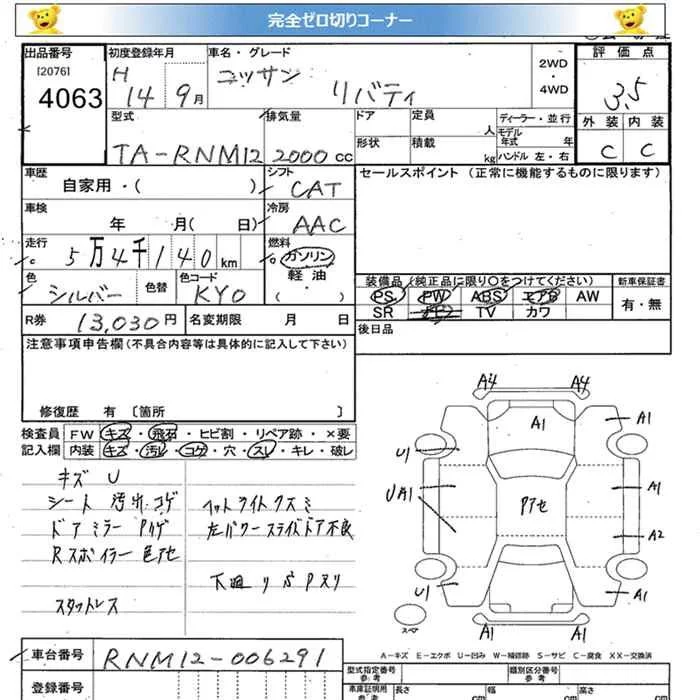 完全ゼロ切りコーナー
出品番号 初度登録年月 車名・グレード 2WD 評価点
[2076] H ニッサン ・
4063 14 9月 リバティ 4WD 3.5
型式 排気量 ドア 定員 人 ディーラー・並行 外装 内装
TA-RNM12 2000cc 形状 積載 kg モデル年式 年 C C
ハンドル 左・右
車歴 シフト セールスポイント (正常に機能するものに限ります)
自家用・( ) CAT
車検 冷房
年 月( 日) AAC
走行 燃料
5万4千140km ガソリン
色 色替 色コード 軽・油 装備品(純正品に限り○をつけてください) 新車保証書
シルバー KYO ( ) PS PW ABS エアB AW 有・無
R券 13,030円 名変期限 月 日 SR TV カワ
後日品
注意事項申告欄(不具合内容等は具体的に記入して下さい)
修復歴 有 〔箇所 〕
検査員 FW キズ・飛石・ヒビ割・リペア跡・×要
記入欄 内装 キズ・汚レ・コゲ・穴・スレ・キレ・破レ
キズ U
シート 汚レ コゲ ヘットライトクスミ
ドアミラー Pハゲ 左パワースライドドア不良
Rスポイラー 色アセ
下廻り
スタットレス
A4 A4
A1 A1
U1
UA1 Pアセ A1
A2
U1 A1
スペア A1 A1
A-キズ E-エクボ U-凹み W-補修跡 S-サビ C-腐食 XX-交換済
車台番号 RNM12-006291 型式指定番号 参考 類別区分番号 参考
登録番号 車庫証明用 参考 長さ cm 幅 cm 高さ cm